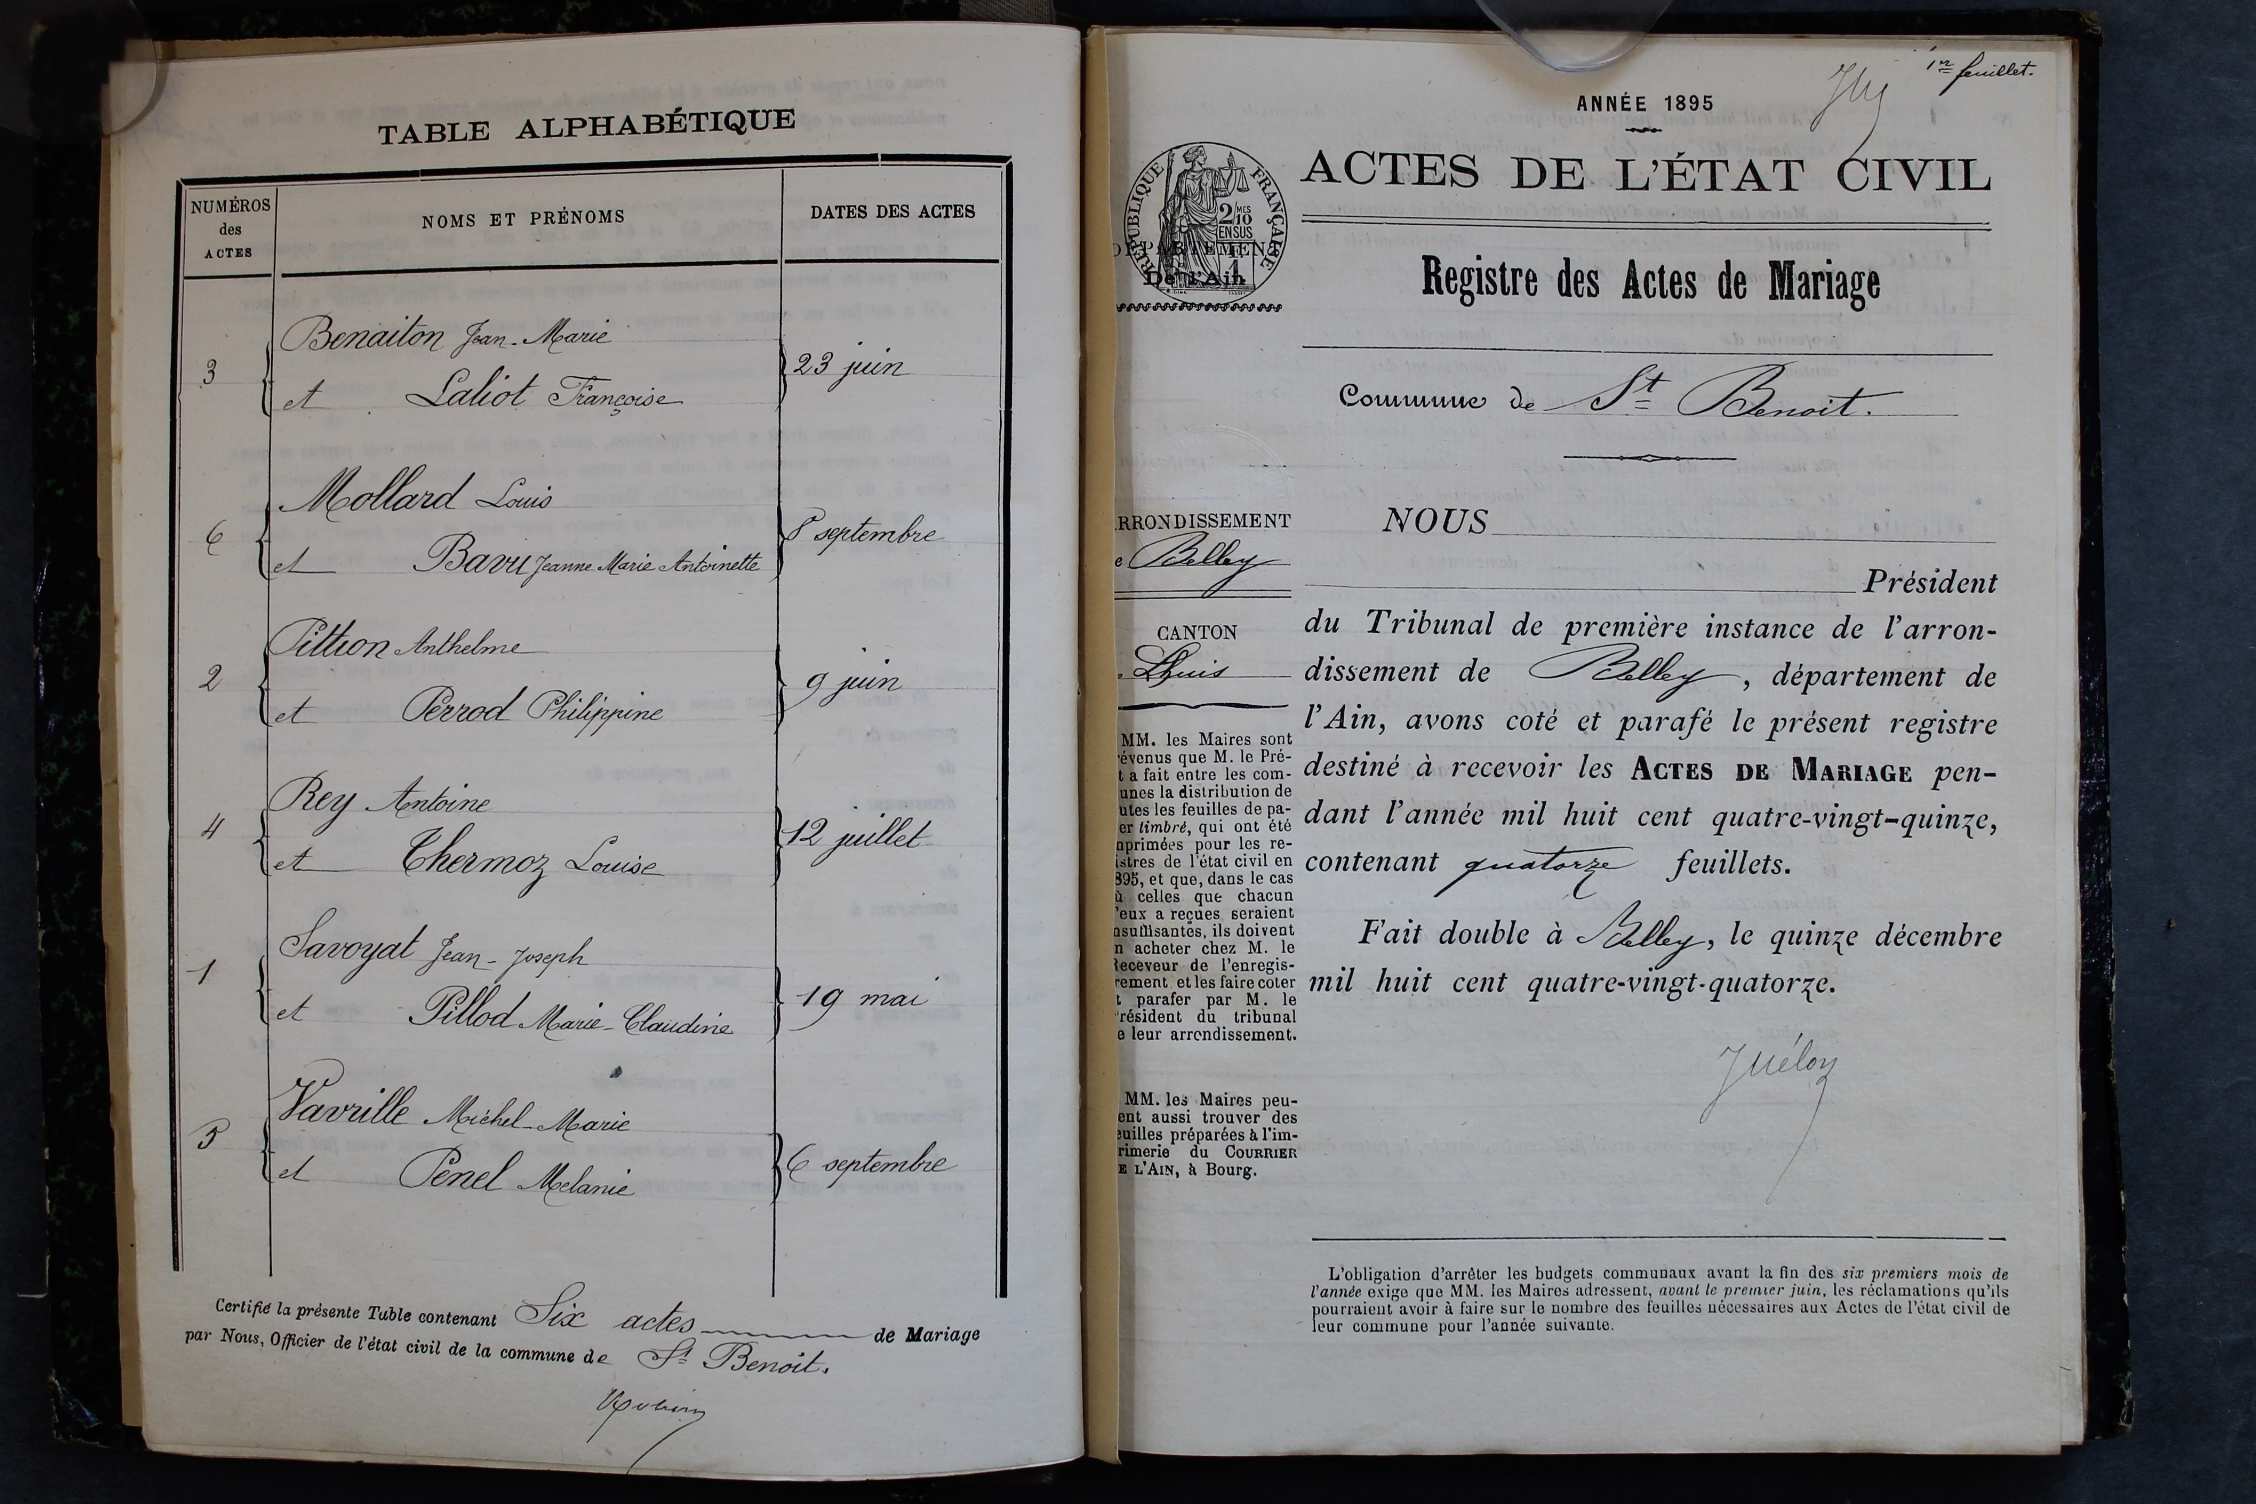 TABLE ALPHABÉTIQUE
NUMÉROS
des
ACTES
NOMS ET PRÉNOMS
DATES DES ACTES
Benaiton Jean-Marie
3
23 juin
et Laliot Françoise
Mollard Louis
6
8 septembre
et Bavu Jeanne Marie Antoinette
Pittion Anthelme
2
9 juin
et Perrod Philippine
Rey Antoine
4
12 juillet
et Thermoz Louise
Savoyat Jean-Joseph
1
19 mai
et Pillod Marie-Claudine
Vavrille Michel-Marie
5
6 septembre
et Penel Melanie
Certifié la présente Table contenant Six actes de Mariage
par Nous, Officier de l'état civil de la commune de St Benoit.
1er feuillet.
ANNÉE 1895
ACTES DE L'ÉTAT CIVIL
RÉPUBLIQUE FRANÇAISE
2 MES
10
EN SUS
DÉPARTEMEN
De l'Ain
Registre des Actes de Mariage
Commune de St Benoit.
RRONDISSEMENT
e Belley
CANTON
Lhuis
MM. les Maires sont
révenus que M. le Pré-
t a fait entre les com-
unes la distribution de
utes les feuilles de pa-
er timbré, qui ont été
mprimées pour les re-
istres de l'état civil en
895, et que, dans le cas
ù celles que chacun
'eux a reçues seraient
nsuffisantes, ils doivent
n acheter chez M. le
Receveur de l'enregis-
rement et les faire coter
t parafer par M. le
résident du tribunal
e leur arrondissement.
MM. les Maires peu-
ent aussi trouver des
euilles préparées à l'im-
rimerie du COURRIER
E L'AIN, à Bourg.
NOUS
Président
du Tribunal de première instance de l'arron-
dissement de Belley, département de
l'Ain, avons coté et parafé le présent registre
destiné à recevoir les ACTES DE MARIAGE pen-
dant l'année mil huit cent quatre-vingt-quinze,
contenant quatorze feuillets.
Fait double à Belley, le quinze décembre
mil huit cent quatre-vingt-quatorze.
L'obligation d'arrêter les budgets communaux avant la fin des six premiers mois de
l'année exige que MM. les Maires adressent, avant le premier juin, les réclamations qu'ils
pourraient avoir à faire sur le nombre des feuilles nécessaires aux Actes de l'état civil de
leur commune pour l'année suivante.